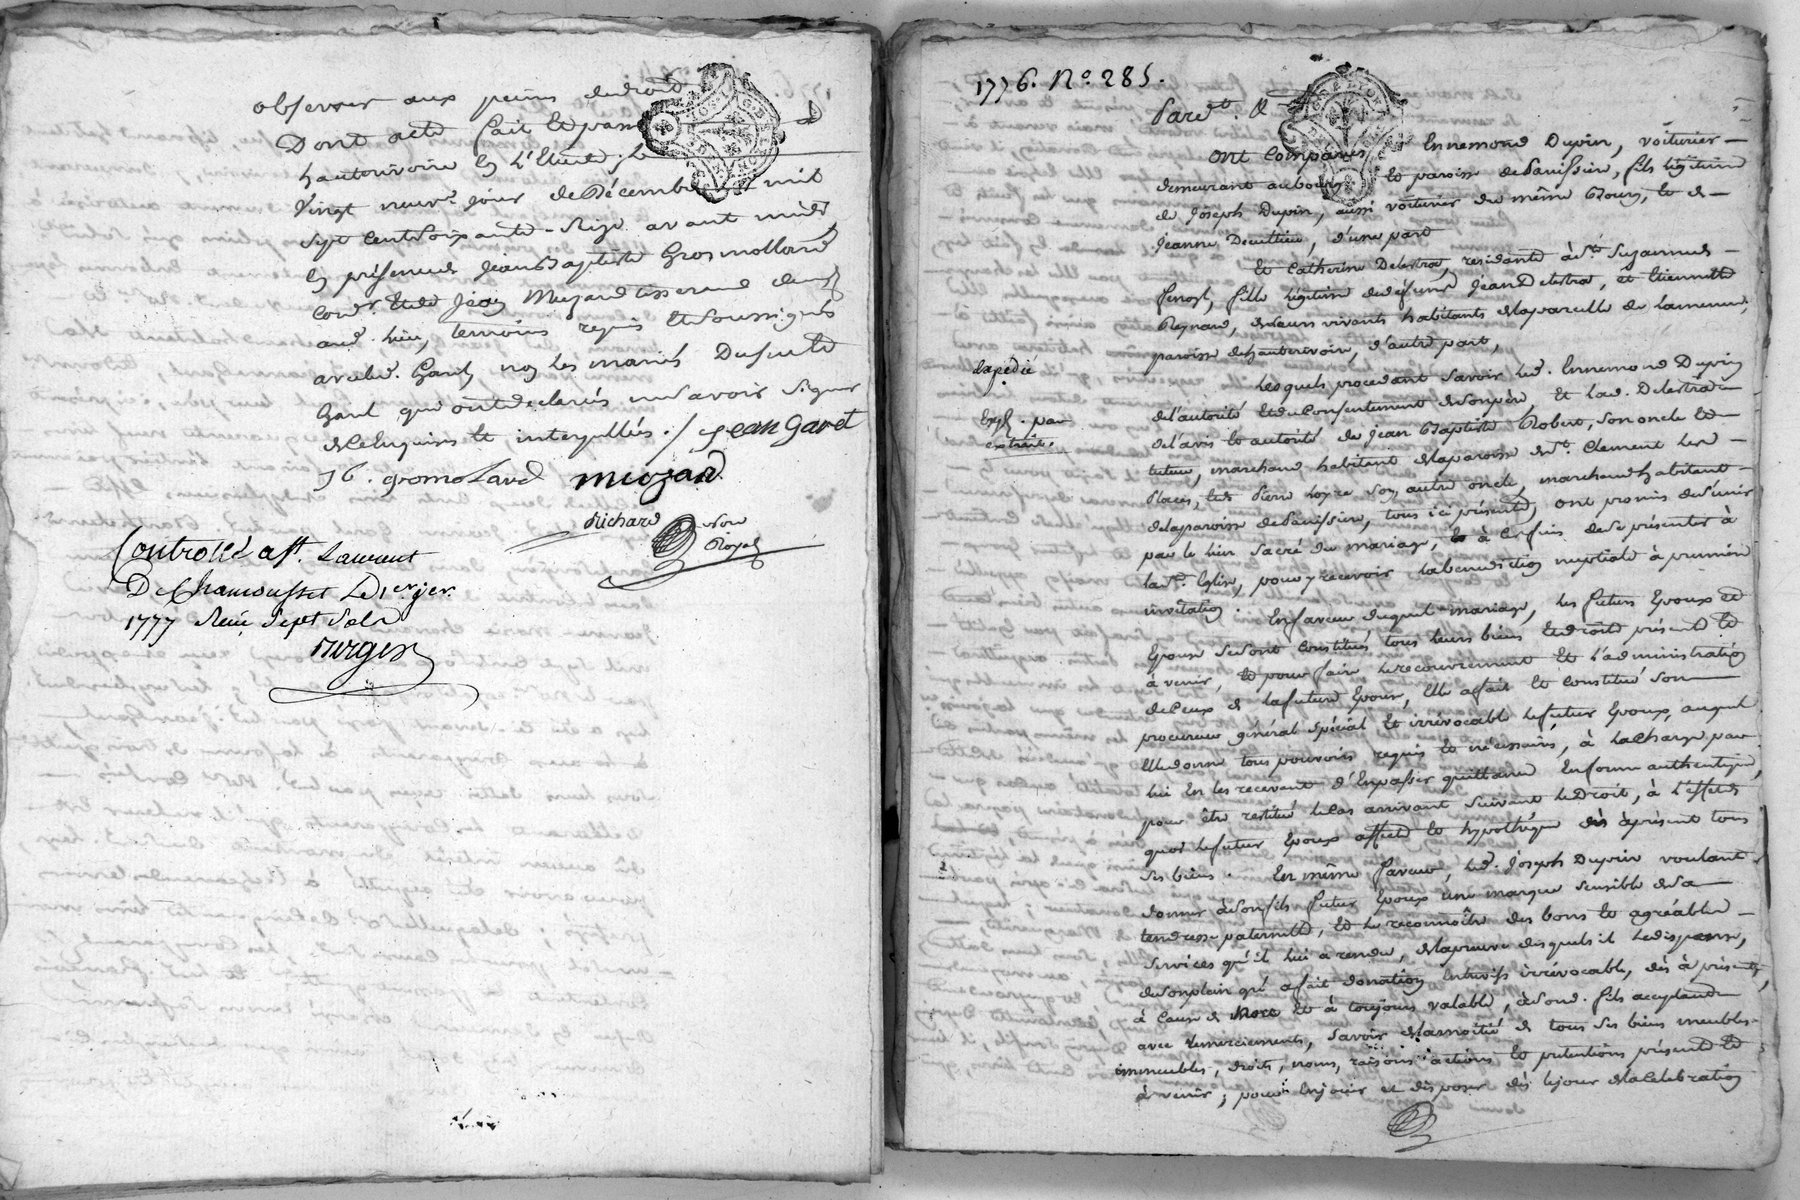 observer aux peines dudroit
Dont acte fait Et passé
hauterivoire En L'Etude, le
Vingt neuve. jour de Décembre mil
Sept Centsoixante-Seize avant midi,
En présence de Jean Baptiste Grosmolland
Cord.r Et de Jean Meyzard tisserand dem.t
aud. lieu, temoins requis Et Soussignés
avec led. Garel, non les mariés
Garel qui ont declarés ne Savoir Signer
de Ce Enquis Et interpellés ./ jean Garel
J B. gromolard meyzard
Richard no.re
Royal
Controllé a St. Laurent
De Chamousset Le 1er jer.
1777 Reçu Sept Sols
1776. No. 285.
Pard.t &
ont Comparus Ennemond Dupin, voiturier
demeurant au bourg Et paroisse de Panissière, fils légitime
de Joseph Dupin, aussi voiturier du même Bourg, Et de
Jeanne Decultieu, d'une part
Et Catherine Delestra, residante à Ste. Suzanne
fille légitime de défunt Jean Delestra, et Etiennette
Reynard, de leurs vivants habitants de la parcelle de
paroisse de hauterivoire, d'autre part,
Expédié
Exp. par
extrait.
Lesquels procedant Savoir led. Ennemond Dupin
de l'autorité Et du Consentement de Son père, Et lad. Delestra
de l'avis Et autorité de Jean Baptiste Robert, Son oncle Et
tuteur, marchand habitant de la paroisse de St. Clement Les
Places, Et de Pierre Loyre Son autre oncle, marchand habitant
de la paroisse de Panissière, tous ici présents, ont promis de S'unir
par le lien Sacré du mariage, Et à Ces fins de Se présenter à
la Ste. Eglise, pour y recevoir la benediction nuptiale à première
invitation. En faveur duquel mariage, les futurs Epoux Et
Epouse Se Sont Constitués tous leurs biens Et droits présents Et
à venir, Et pour faire le recouvrement Et l'administration
de Ceux de la future Epouse, Elle a fait Et Constitué Son
procureur général Spécial Et irrévocable le futur Epoux, auquel
Elle donne tous pouvoirs requis Et nécessaires, à la Charge par
lui En les recevant d'En passer quittance En forme authentique,
pour être restitué le Cas arrivant Suivant le Droit, à l'effet de
quoi le futur Epoux affecte Et hypothèque dès àprésent tous
Ses biens. En même faveur, led. Joseph Dupin voulant
donner à Son fils futur Epoux une marque Sensible de Sa
tendresse paternelle, Et le reconnoître des bons Et agréables
Services qu'il lui a rendu, de la preuve desquels il le dispense,
de Son plein gré a fait donation Entrevifs irrévocable, dès à présent,
à Cause de Mort Et à toujours valable, à Sond. fils acceptant
avec remerciements, Savoir de la moitié de tous Ses biens meubles
immeubles, droits, noms, raisons actions Et pretentions présents Et
à venir ; pour En jouir et disposer dès le jour de la Celebration